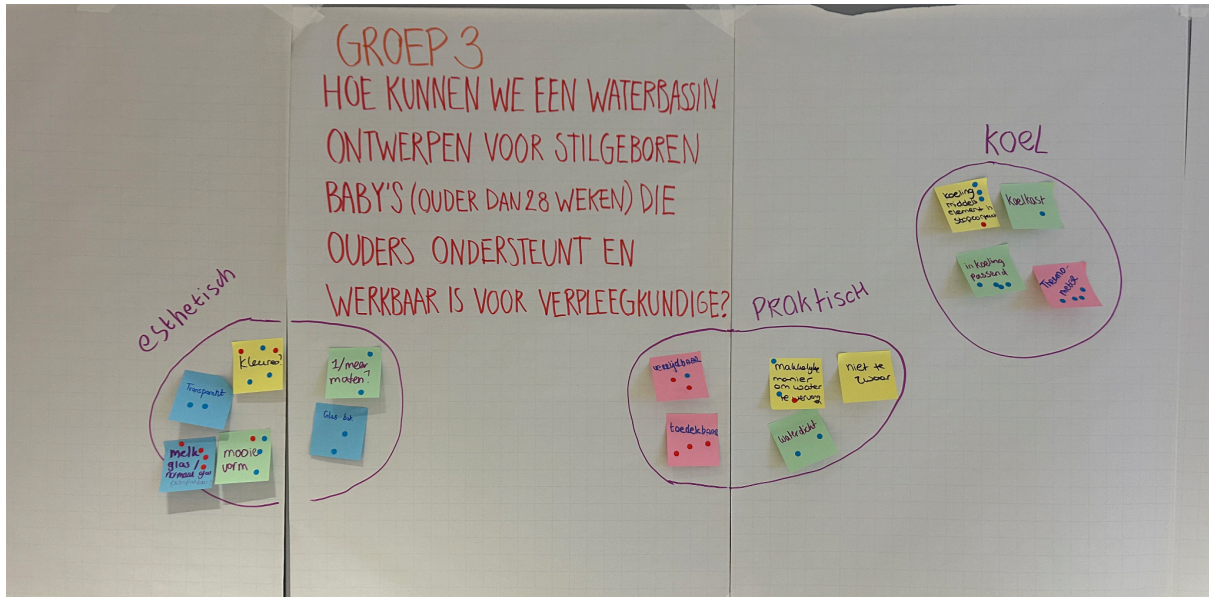 GROEP 3
HOE KUNNEN WE EEN WATERBASSIN
ONTWERPEN VOOR STILGEBOREN
BABY'S (OUDER DAN 28 WEKEN) DIE
OUDERS ONDERSTEUNT EN
WERKBAAR IS VOOR VERPLEEGKUNDIGE?
esthetisch
Kleuren?
Transparant
melk
glas /
normaal glas
mooie
vorm
1/meer
maten?
Glas bak
PRAKTISCH
verrijdbaar
toedekbaar
makkelijke
manier
om water
te
niet te
zwaar
waterdicht
KOEL
koeling
middels
element in
Koelkast
in koeling
passend
Thermo-
meter